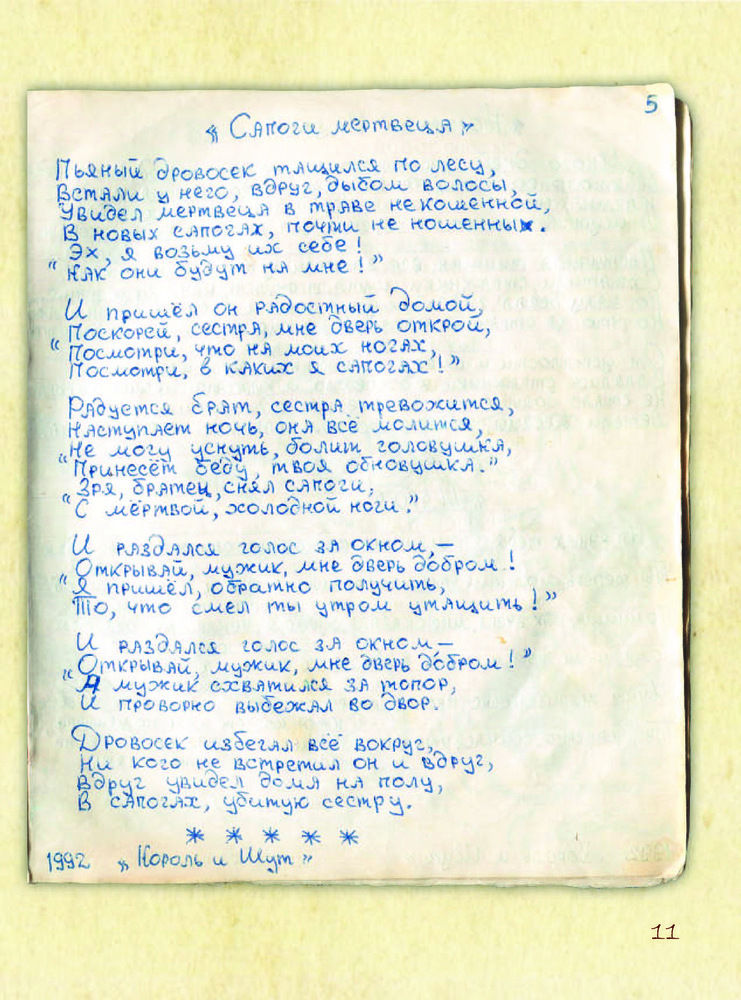 5
„Сапоги мертвеца"
Пьяный дровосек тащился по лесу,
Встали у него, вдруг, дыбом волосы,
Увидел мертвеца в траве некошенной,
В новых сапогах, почти не ношенных.
Эх, я возьму их себе!
"Как они будут на мне!"
И пришёл он радостный домой,
Поскорей, сестра, мне дверь открой,
"Посмотри, что на моих ногах,
Посмотри, в каких я сапогах!"
Радуется брат, сестра тревожится,
Наступает ночь, она всё молится,
Не могу уснуть, болит головушка,
"Принесёт беду, твоя обновушка."
Зря, братец, снял сапоги,
"С мёртвой, холодной ноги."
И раздался голос за окном,—
Открывай, мужик, мне дверь добром!
"Я пришёл, обратно получить,
То, что смел ты утром утащить!"
И раздался голос за окном—
"Открывай, мужик, мне дверь добром!"
А мужик схватился за топор,
И проворно выбежал во двор.
Дровосек избегал всё вокруг,
Ни кого не встретил он и вдруг,
Вдруг увидел дома на полу,
В сапогах, убитую сестру.
* * * * *
1992 „Король и Шут"
11